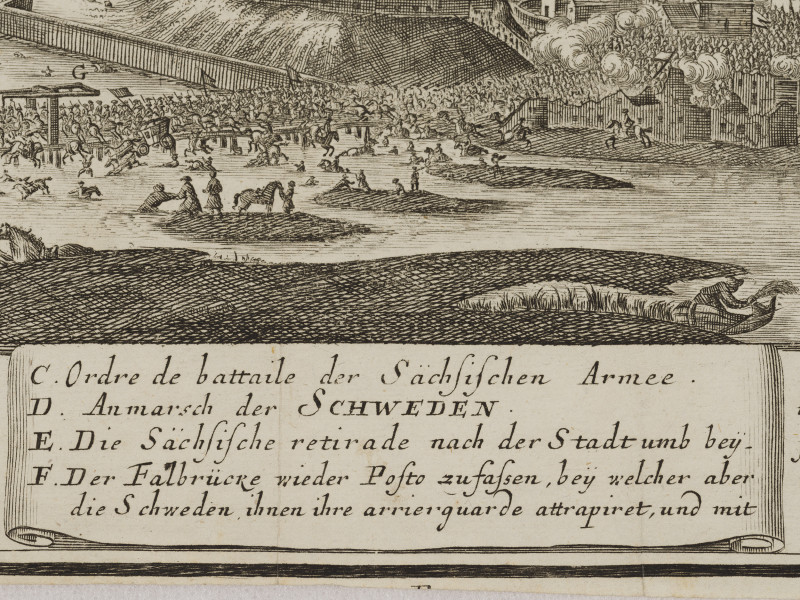 G
C. Ordre de battaile der Sächſiſchen Armee.
D. Anmarsch der SCHWEDEN.
E. Die Sächſiſche retirade nach der Stadt umb beÿ-
F. Der Falbrücke wieder Poſto zufaſsen, beÿ welcher aber
die Schweden ihnen ihre arrierguarde attrapiret, und mit